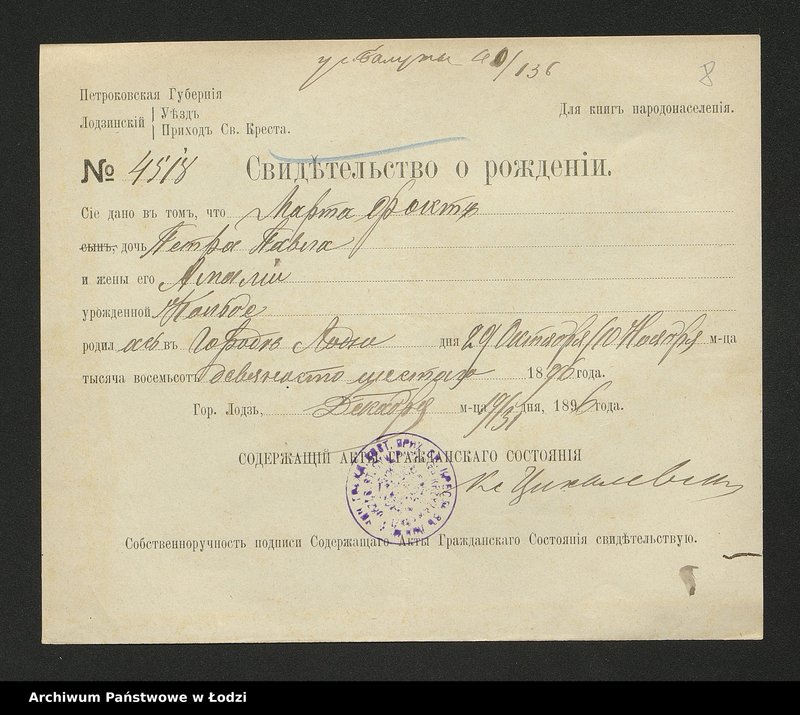 40/136
8
Петроковская Губернія
Лодзинскій Уѣздъ
Приходъ Св. Креста.
Для книгъ народонаселенія.
№ 4518 Свидѣтельство о рожденіи.
Сіе дано въ томъ, что Марта
сынъ, дочь Петра Павла
и жены его Амаліи
урожденной
родилась въ городѣ Лодзи дня 29 Октября/10 Ноября м-ца
тысяча восемьсотъ девяносто шестаго 1896 года.
Гор. Лодзь, Декабря м-ца 19/31 дня, 1896 года.
СОДЕРЖАЩІЙ АКТЫ ГРАЖДАНСКАГО СОСТОЯНІЯ
Кс
Собственноручность подписи Содержащаго Акты Гражданскаго Состоянія свидѣтельствую.
Archiwum Państwowe w Łodzi